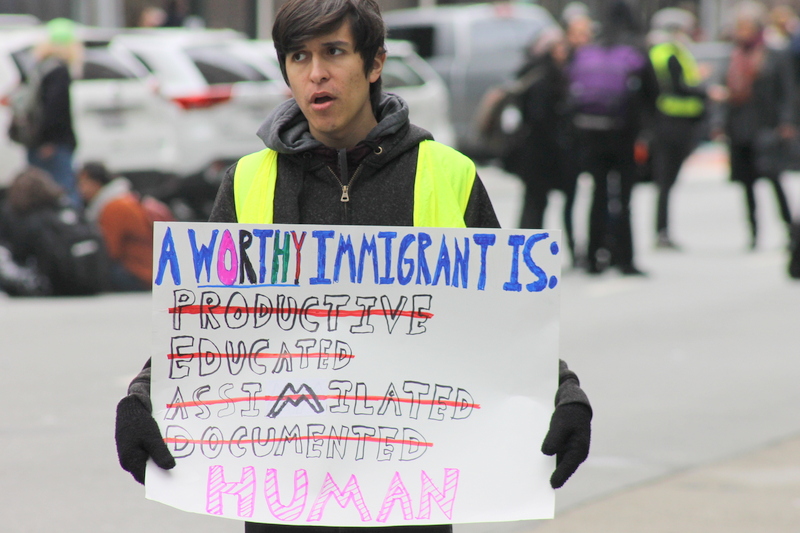 A WORTHY IMMIGRANT IS:
PRODUCTIVE
EDUCATED
ASSIMILATED
DOCUMENTED
HUMAN